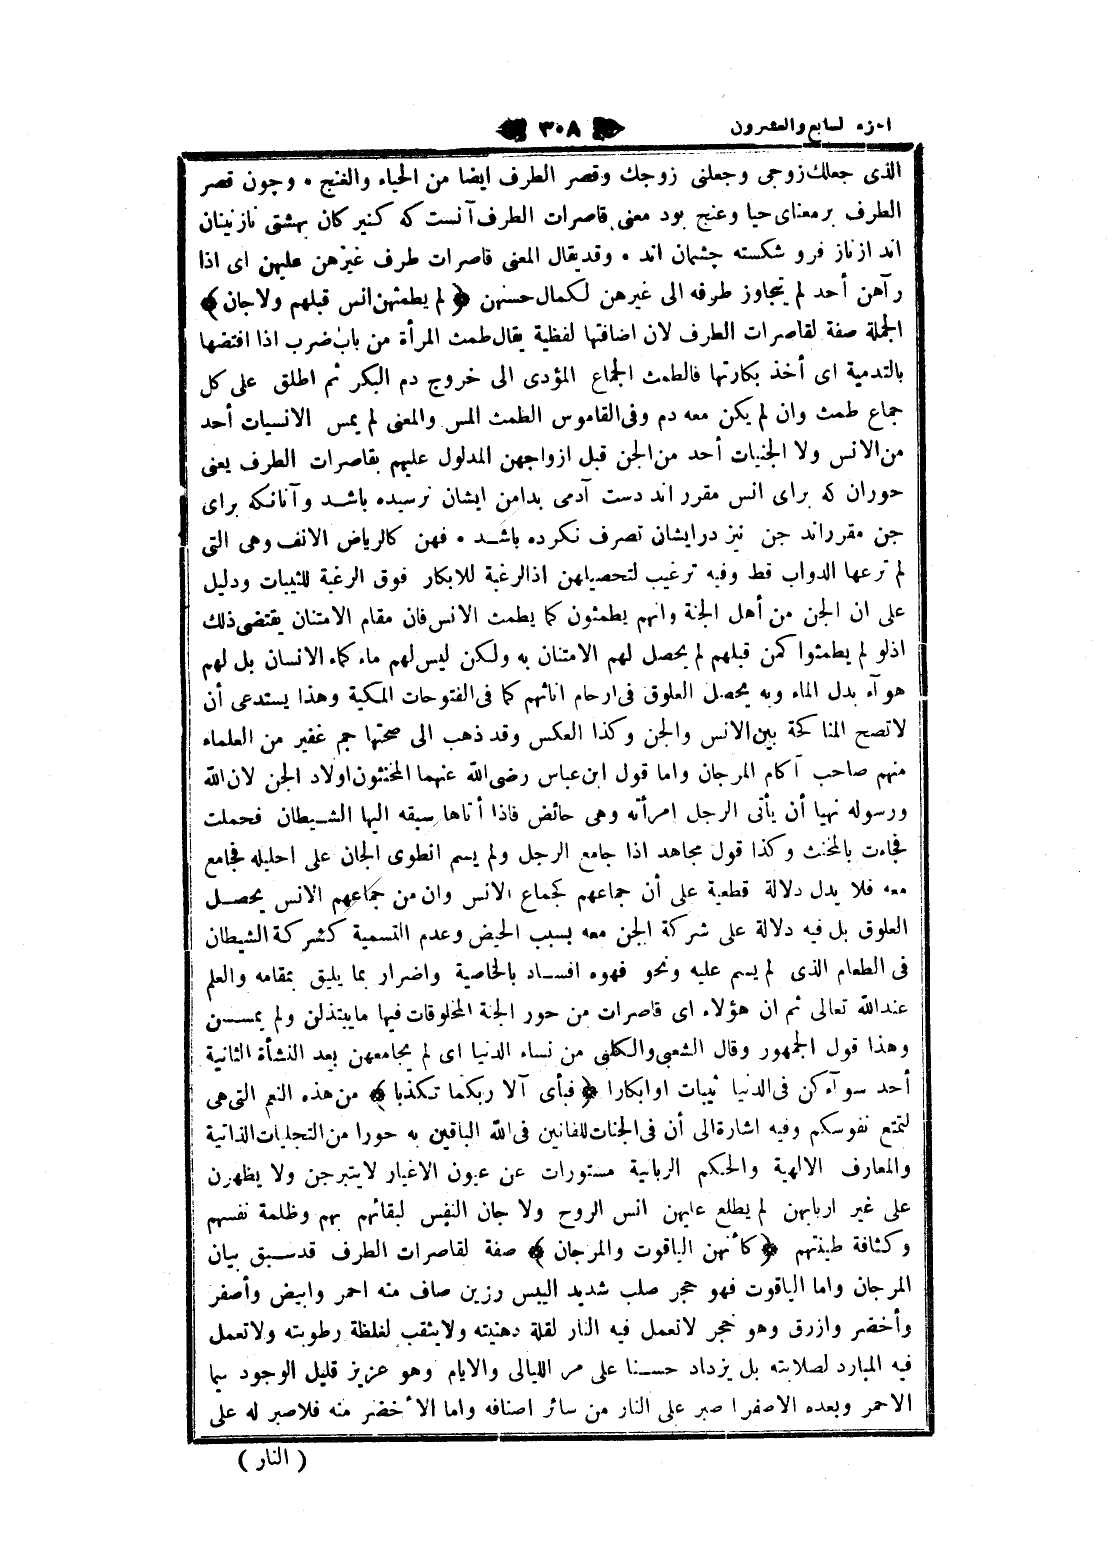 الجزء السابع والعشرون ٣٠٨
الذى جعلك زوجى وجعلنى زوجك وقصر الطرف ايضا من الحياء والغنج • وچون قصر
الطرف بر معناى حيا وغنج بود معنى قاصرات الطرف آنست كه كنيز كان بهشتى نازنينان
اند از ناز فرو شكسته چشمان اند • وقد يقال المعنى قاصرات طرف غيرهن عليهن اى اذا
رآهن أحد لم يتجاوز طرفه الى غيرهن لكمال حسنهن ﴿ لم يطمثهن انس قبلهم ولا جان ﴾
الجملة صفة لقاصرات الطرف لان اضافتها لفظية يقال طمث المرأة من باب ضرب اذا افتضها
بالتدمية اى أخذ بكارتها فالطمث الجماع المؤدى الى خروج دم البكر ثم اطلق على كل
جماع طمث وان لم يكن معه دم وفى القاموس الطمث المس والمعنى لم يمس الانسيات أحد
من الانس ولا الجنيات أحد من الجن قبل ازواجهن المدلول عليهم بقاصرات الطرف يعنى
حوران كه براى انس مقرر اند دست آدمى بدامن ايشان نرسيده باشد وآنانكه براى
جن مقرراند جن نيز در ايشان تصرف نكرده باشد • فهن كالرياض الانف وهى التى
لم ترعها الدواب قط وفيه ترغيب لتحصيلهن اذ الرغبة للابكار فوق الرغبة للثيبات ودليل
على ان الجن من أهل الجنة وانهم يطمثون كما يطمث الانس فان مقام الامتنان يقتضى ذلك
اذ لو لم يطمثوا كمن قبلهم لم يحصل لهم الامتنان به ولكن ليس لهم ماء كماء الانسان بل لهم
هوآء بدل الماء وبه يحصل العلوق فى ارحام اناثهم كما فى الفتوحات المكية وهذا يستدعى أن
لا تصح المناكحة بين الانس والجن وكذا العكس وقد ذهب الى صحتها جم غفير من العلماء
منهم صاحب آكام المرجان واما قول ابن عباس رضى الله عنهما المخنثون اولاد الجن لان الله
ورسوله نهيا أن يأتى الرجل امرأته وهى حائض فاذا أتاها سبقه اليها الشيطان فحملت
فجاءت بالمخنث وكذا قول مجاهد اذا جامع الرجل ولم يسم انطوى الجان على احليله فجامع
معه فلا يدل دلالة قطعية على أن جماعهم كجماع الانس وان من جماعهم الانس يحصل
العلوق بل فيه دلالة على شركة الجن معه بسبب الحيض وعدم التسمية كشركة الشيطان
فى الطعام الذى لم يسم عليه ونحو فهوه افساد بالخاصية واضرار بما يليق بمقامه والعلم
عند الله تعالى ثم ان هؤلاء اى قاصرات من حور الجنة المخلوقات فيها مايبتذلن ولم يمسسن
وهذا قول الجمهور وقال الشعبى والكلبى من نساء الدنيا اى لم يجامعهن بعد النشأة الثانية
أحد سوآء كن فى الدنيا ثيبات او ابكارا ﴿ فبأى آلا ربكما تكذبا ﴾ من هذه النعم التى هى
لتمتع نفوسكم وفيه اشارة الى أن فى الجنات للفانين فى الله الباقين به حورا من التجليات الذاتية
والمعارف الالهية والحكم الربانية مستورات عن عيون الاغيار لايتبرجن ولا يظهرن
على غير اربابهن لم يطلع عليهن انس الروح ولا جان النفس لبقائهم بهم وظلمة نفسهم
وكثافة طينتهم ﴿ كأنهن الياقوت والمرجان ﴾ صفة لقاصرات الطرف قد سبق بيان
المرجان واما الياقوت فهو حجر صلب شديد اليبس رزين صاف منه احمر وابيض وأصفر
وأخضر وازرق وهو حجر لا تعمل فيه النار لقلة دهنيته ولا يثقب لغلظة رطوبته ولا تعمل
فيه المبارد لصلابته بل يزداد حسنا على مر الليالى والايام وهو عزيز قليل الوجود سيما
الاحمر وبعده الاصفر اصبر على النار من سائر اصنافه واما الأخضر منه فلا صبر له على
( النار )